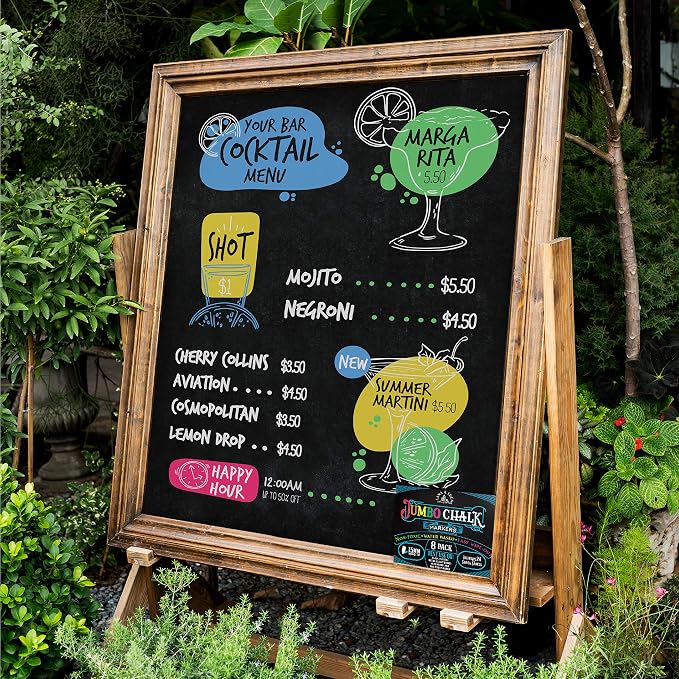 YOUR BAR
COCKTAIL
MENU
MARGA
RITA
5.50
SHOT
$1
MOJITO ...... $5.50
NEGRONI .... $4.50
CHERRY COLLINS $3.50
AVIATION .... $4.50
COSMOPOLITAN $3.50
LEMON DROP .. $4.50
NEW
SUMMER
MARTINI $5.50
HAPPY
HOUR
12:00AM
UP TO 50% OFF
JUMBO CHALK
MARKERS
NON-TOXIC • WATER BASED •
8 PACK